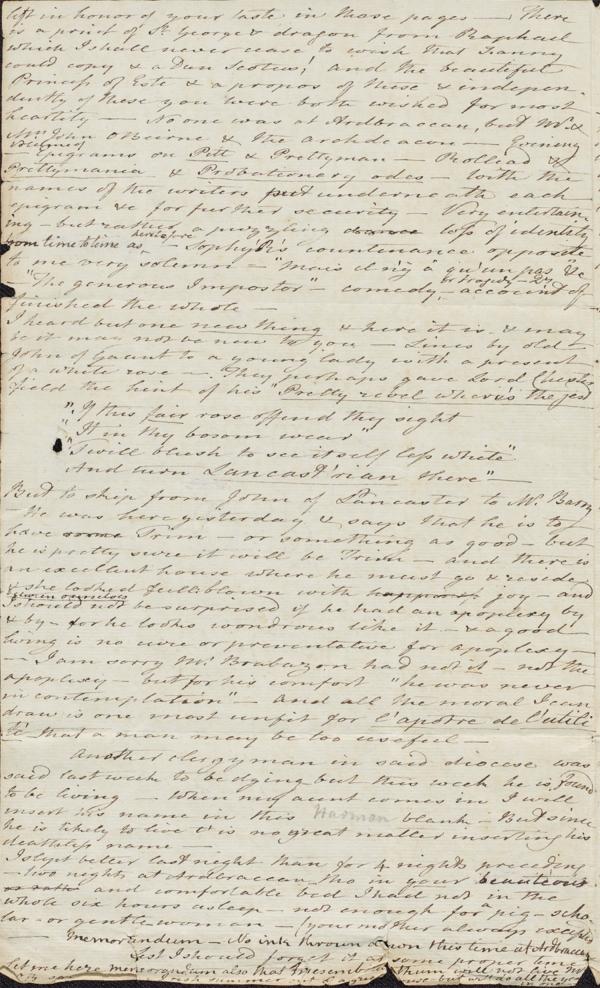 left in honor of your taste in those pages — There
is a print of St. George & dragon from Raphael
which I shall never cease to wish that Fanny
could copy & a Dun Scotus! and the beautiful
Princess of Este & a propos of these & indepen-
dently of these you were both wished for most
heartily — No one was at Ardbraccan, but Mr. &
Mrs. John OBeirne & the archdeacon — Evening
Epigrams on Pitt & Prettyman — Rolliad &
Prettymania & Probationary odes — with the
names of the writers put underneath each
epigram &c for further security — Very entertain-
ing — but rather a puzzling loss of identity
from time to time as heretofore — Sophy R's countenance opposite
to me very solemn — "Mais il n'y a qu'un pas &c
"The generous Impostor" — comedy, or tragedy — account of
finished the whole —
I heard but one new thing & here it is & may
be it may not be new to you — Lines by old
John of Gaunt to a young lady with a present
of a white rose —. They perhaps gave Lord Chester
field the hint of his "Pretty rebel where's the jest
"If this fair rose offend thy sight
"It in thy bosom wear"
"Twill blush to see itself less white"
And turn Lancast'rian there" —
But to skip from John of Lancaster to Mr. Barry
— He was here yesterday & says that he is to
have Trim — or something as good — but
he is pretty sure it will be Trim — and there is
an excellent house where he must go & reside
& she looked fullblown with joy — and
I should not be surprised if he had an apoplexy by
& by — for he looks wondrous like it — & a good
living is no cure or preventative for apoplexy —
— I am sorry Mr. Brabazon had not it — not the
apoplexy — but for his comfort "he was never
in contemplation" — And all the moral I can
draw is one most unfit for l'apotre de l'utili
té that a man may be too useful —
Another clergyman in said diocese was
said last week to be dying but this week he is found
to be living — When my aunt comes in I will
insert his name in this Harman blank — But since
he is likely to live it is no great matter inserting his
deathless name —
I slept better last night than for 4 nights preceding
— two nights at Ardbraccan tho in your beauteous
and comfortable bed I had not in the
whole six hours asleep — not enough for a pig — scho-
lar — or gentlewoman — (your mother always excepted
— Memorandum — No ink thrown down this time at Ardbraccan
Lest I should forget it at some proper time
Let me here memorandum also that